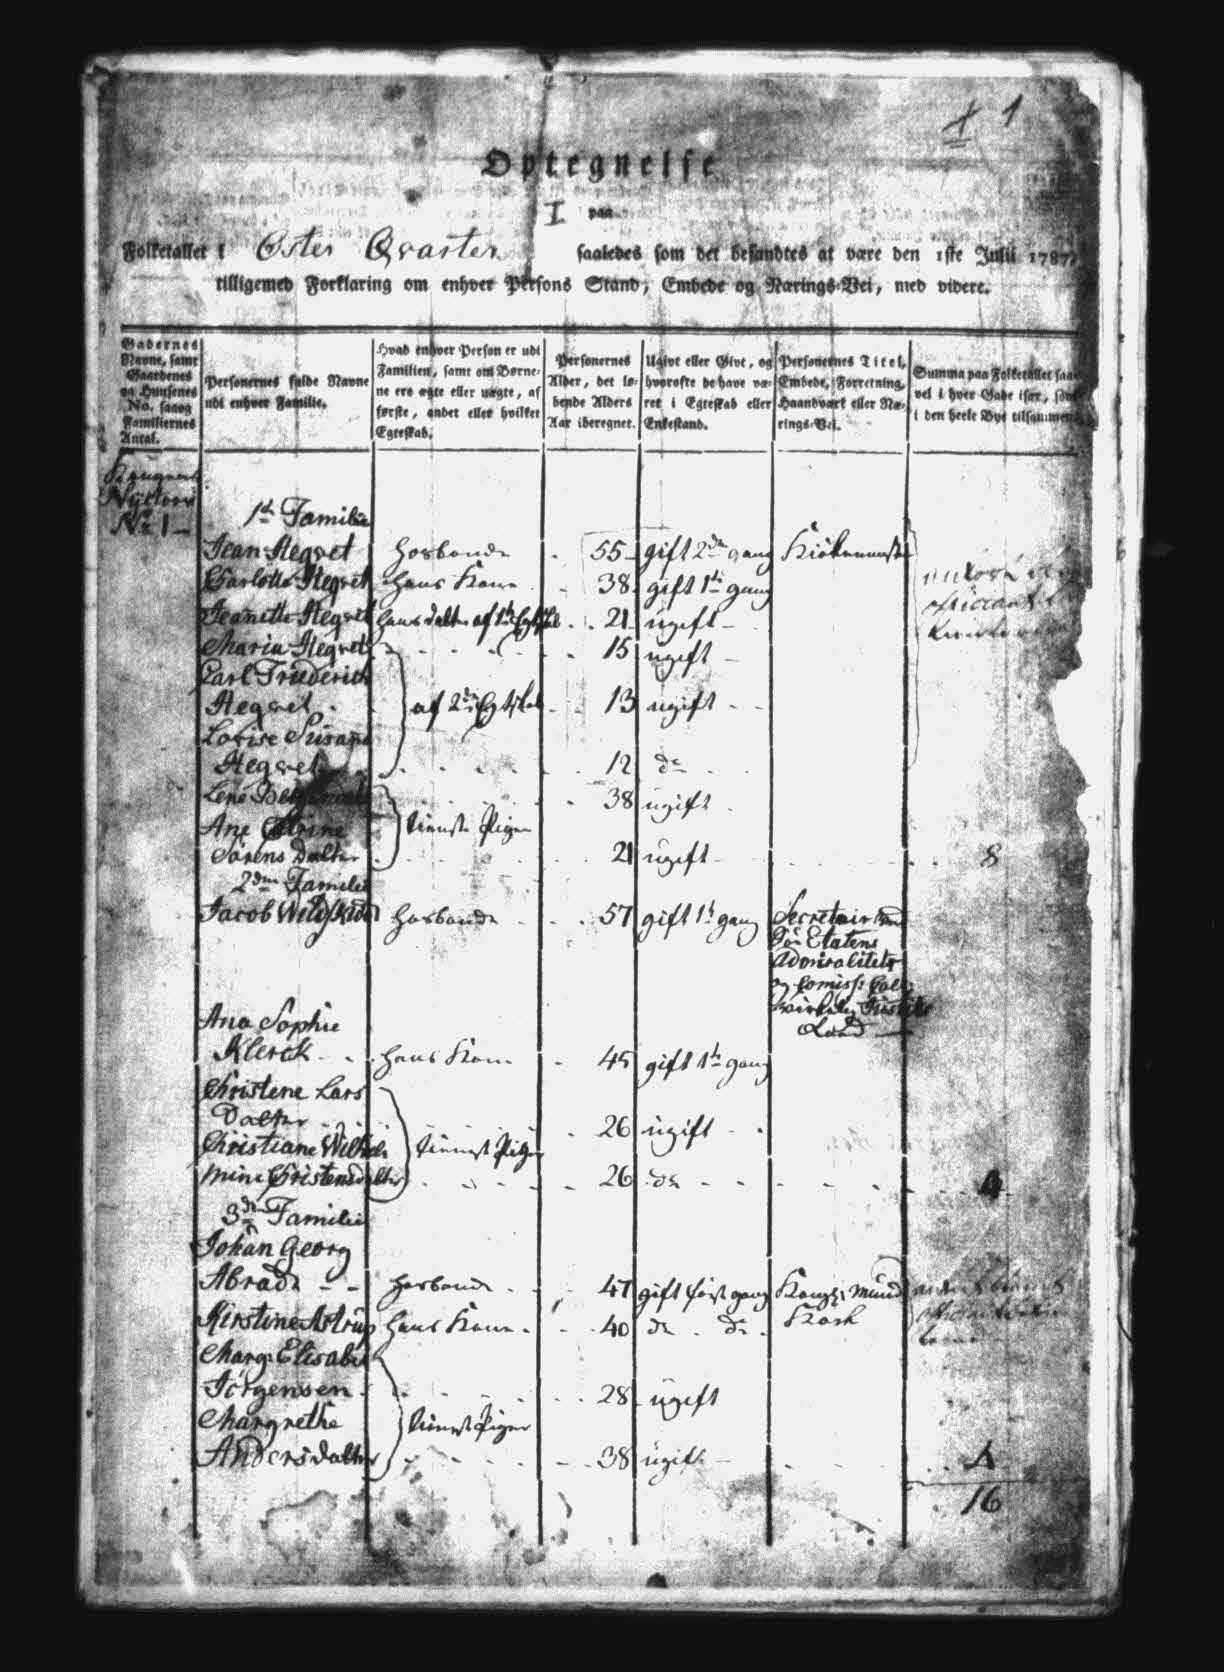 1
Optegnelse
I paa
Folketallet i Øster Qvarter saaledes som det befandtes at være den 1ste Julii 1787,
tilligemed Forklaring om enhver Persons Stand, Embede og Nærings-Vei, med videre.
Gadernes Navne, samt Gaardenes og Huusenes No. saaog Familiernes Antal.
Personernes fulde Navne udi enhver Familie.
Hvad enhver Person er udi Familien, samt om Børnene ere ægte eller uægte, af første, andet eller hvilket Egteskab.
Personernes Alder, det løbende Alders Aar iberegnet.
Ugivt eller Givt, og hvorofte de have været i Egteskab eller Enkestand.
Personernes Titel, Embede, Forretning, Haandværk eller Nærings-Vei.
Summa paa Folketallet saavel i hver Gade især, som i den heele Bye tilsammen
Nÿetorv
No 1
1te Familie
Jean Hegvet Hosbonde 55 gift 2den gang
Charlotta Hegvet hans Kone 38 gift 1te gang
Jeanette Hegvet hans datter af 1te Egtskb 21 ugift
Maria Hegvet 15 ugift
Carl Friderich
Hegvet af 2den Egtskab 13 ugift
Lovise Susane
Hegvet 12 do
Lene 38 ugift
Ane Catrine tieneste Piger
Sørens Datter 21 ugift 8
2den Familie
Jacob Hosbonde 57 gift 1te gang Secretair ved
Søe Etatens
Admiralitets
og Comiss: Coll:
Raad
Ana Sophie
Klerck hans Kone 45 gift 1te gang
Christene Lars
Datter 26 ugift
Christiane Wilhel tienest Piger
mine Christensdatter 26 do 4
3de Familie
Johan Georg
Abrade Hosbonde 47 gift først gang Kong: Mund
Kirstine Astrup hans Kone 40 do do Kock
Marg: Elisabet
Jörgensen 28 ugift
Margrethe tienest Piger
Andersdatter 38 ugift 4
16